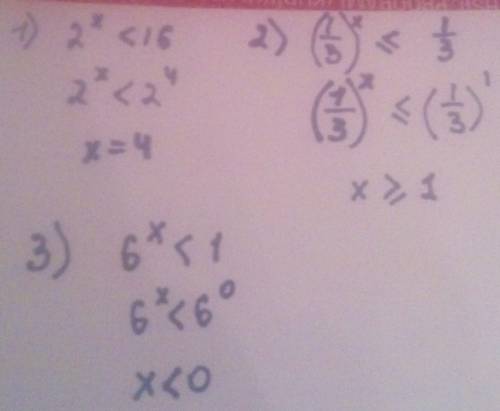 1) 2^x < 16
2^x < 2^4
x = 4
2) (1/3)^x ≤ 1/3
(1/3)^x ≤ (1/3)^1
x ≥ 1
3) 6^x < 1
6^x < 6^0
x < 0